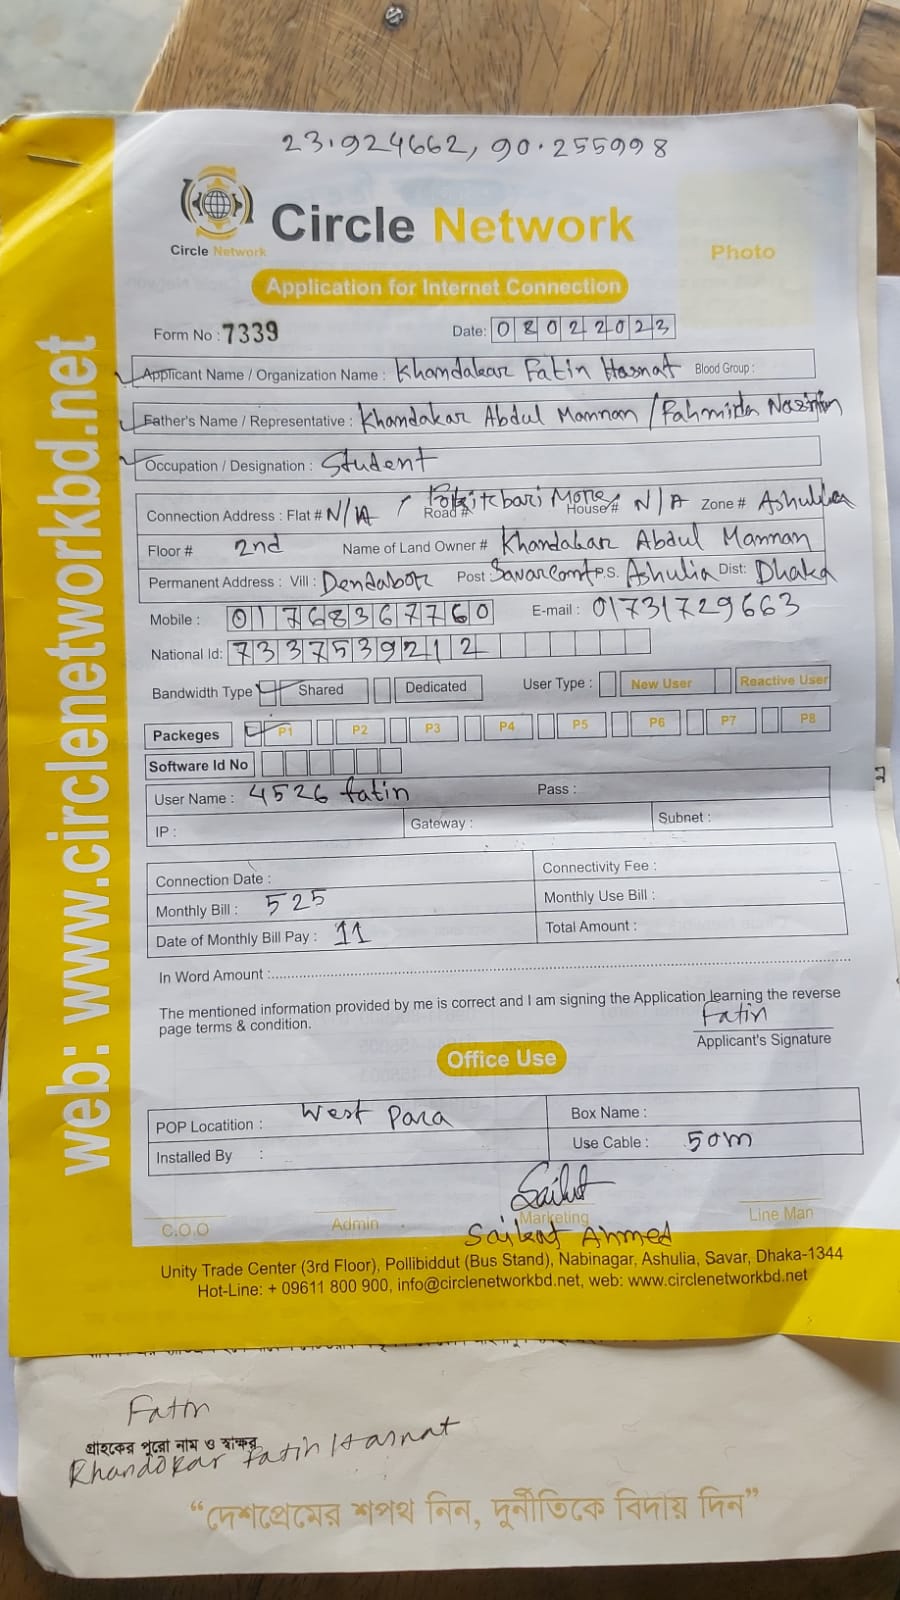 23.924662, 90.255998
Circle Network
Circle Network
Photo
Application for Internet Connection
Form No : 7339 Date: 08022023
Applicant Name / Organization Name : Khandakar Fatin Hasnat Blood Group :
Father's Name / Representative : Khandakar Abdul Mannan / Fahmida Nasrin
Occupation / Designation : Student
Connection Address : Flat # N/A / Road # House # N/A Zone # Ashulia
Floor # 2nd Name of Land Owner # Khandakar Abdul Mannan
Permanent Address : Vill : Post : P.S. Ashulia Dist: Dhaka
Mobile : 01768367760 E-mail : 01731729663
National Id: 7337539212
Bandwidth Type Shared Dedicated User Type : New User Reactive User
Packeges P1 P2 P3 P4 P5 P6 P7 P8
Software Id No
User Name : 4526 fatin Pass :
IP : Gateway : Subnet :
Connection Date : Connectivity Fee :
Monthly Bill : 525 Monthly Use Bill :
Date of Monthly Bill Pay : 11 Total Amount :
In Word Amount :
The mentioned information provided by me is correct and I am signing the Application learning the reverse
page terms & condition.
Fatin
Applicant's Signature
Office Use
POP Locatition : West Para Box Name :
Installed By : Use Cable : 50m
C.O.O Admin Marketing Line Man
Saikat Ahmed
Unity Trade Center (3rd Floor), Pollibiddut (Bus Stand), Nabinagar, Ashulia, Savar, Dhaka-1344
Hot-Line: + 09611 800 900, info@circlenetworkbd.net, web: www.circlenetworkbd.net
web: www.circlenetworkbd.net
Fatin
গ্রাহকের পুরো নাম ও স্বাক্ষর
Khandokar Fatin Hasnat
“দেশপ্রেমের শপথ নিন, দুর্নীতিকে বিদায় দিন”